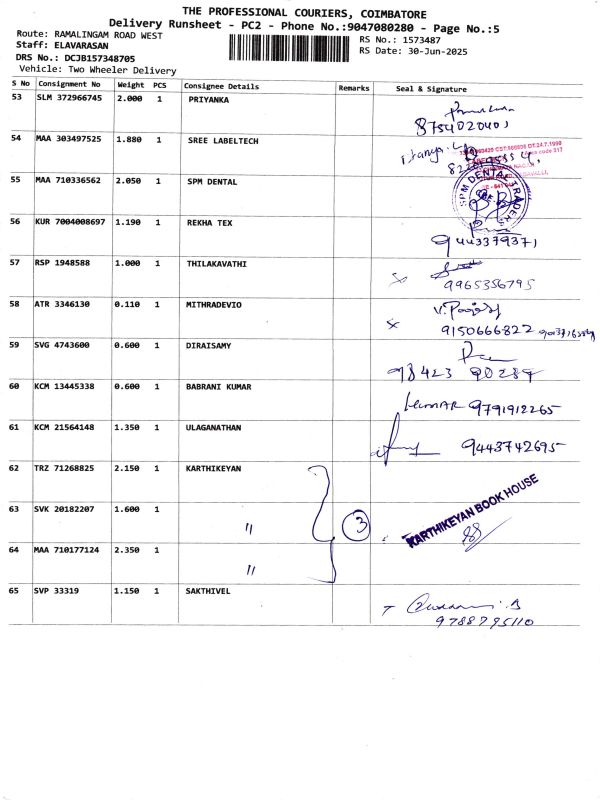 THE PROFESSIONAL COURIERS, COIMBATORE
Delivery Runsheet - PC2 - Phone No.:9047080280 - Page No.:5
Route: RAMALINGAM ROAD WEST
RS No.: 1573487
Staff: ELAVARASAN
RS Date: 30-Jun-2025
DRS No.: DCJB157348705
Vehicle: Two Wheeler Delivery
S No Consignment No Weight PCS Consignee Details Remarks Seal & Signature
53 SLM 372966745 2.000 1 PRIYANKA
8754020401
54 MAA 303497525 1.880 1 SREE LABELTECH
55 MAA 710336562 2.050 1 SPM DENTAL
SPM DENTAL TRADERS
56 KUR 7004008697 1.190 1 REKHA TEX
9443379371
57 RSP 1948588 1.000 1 THILAKAVATHI
9965356795
58 ATR 3346130 0.110 1 MITHRADEVIO
9150666822
59 SVG 4743600 0.600 1 DIRAISAMY
98423 90289
60 KCM 13445338 0.600 1 BABRANI KUMAR
KUMAR 9791912265
61 KCM 21564148 1.350 1 ULAGANATHAN
9443742695
62 TRZ 71268825 2.150 1 KARTHIKEYAN
63 SVK 20182207 1.600 1 " 3
KARTHIKEYAN BOOK HOUSE
64 MAA 710177124 2.350 1 "
65 SVP 33319 1.150 1 SAKTHIVEL
9788795110